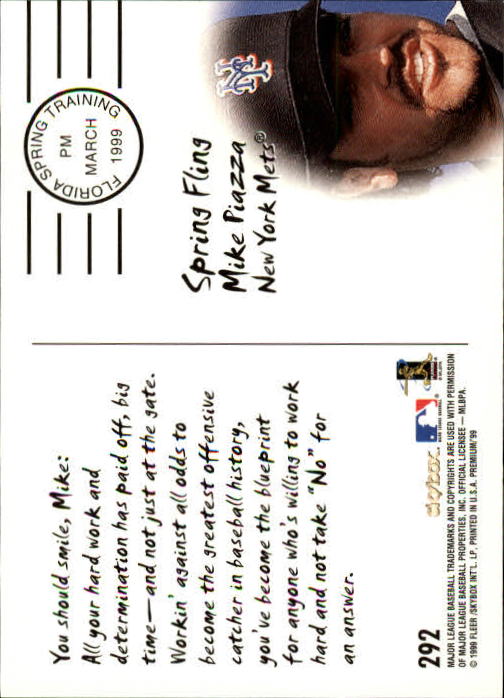 You should smile, Mike:
All your hard work and
determination has paid off, big
time—and not just at the gate.
Workin' against all odds to
become the greatest offensive
catcher in baseball history,
you've become the blueprint
for anyone who's willing to work
hard and not take "No" for
an answer.
FLORIDA SPRING TRAINING
PM
MARCH
1999
NY
Spring Fling
Mike Piazza
New York Mets®
292
skybox
MAJOR LEAGUE BASEBALL TRADEMARKS AND COPYRIGHTS ARE USED WITH PERMISSION
OF MAJOR LEAGUE BASEBALL PROPERTIES, INC. OFFICIAL LICENSEE — MLBPA.
© 1999 FLEER/SKYBOX INT'L. LP. PRINTED IN U.S.A. PREMIUM/'99